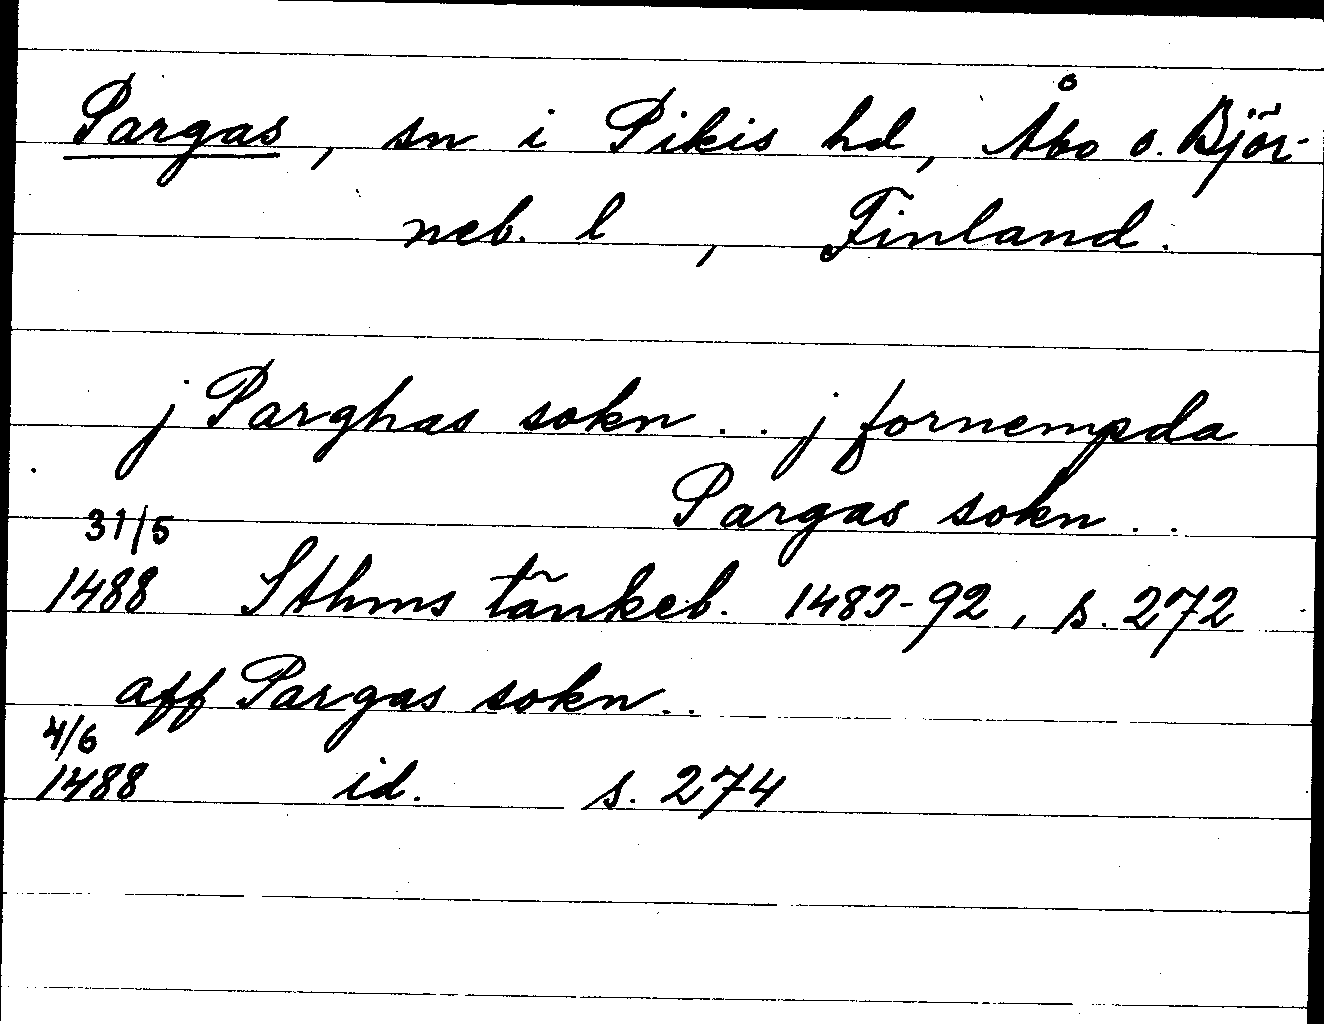 Pargas, sn i Pikis hd, Åbo o. Björ-
neb. l , Finland.
j Parghas sokn .. j fornempda
Pargas sokn ..
31/5
1488 Sthms tänkeb. 1483-92, s. 272
aff Pargas sokn ..
4/6
1488 id. s. 274